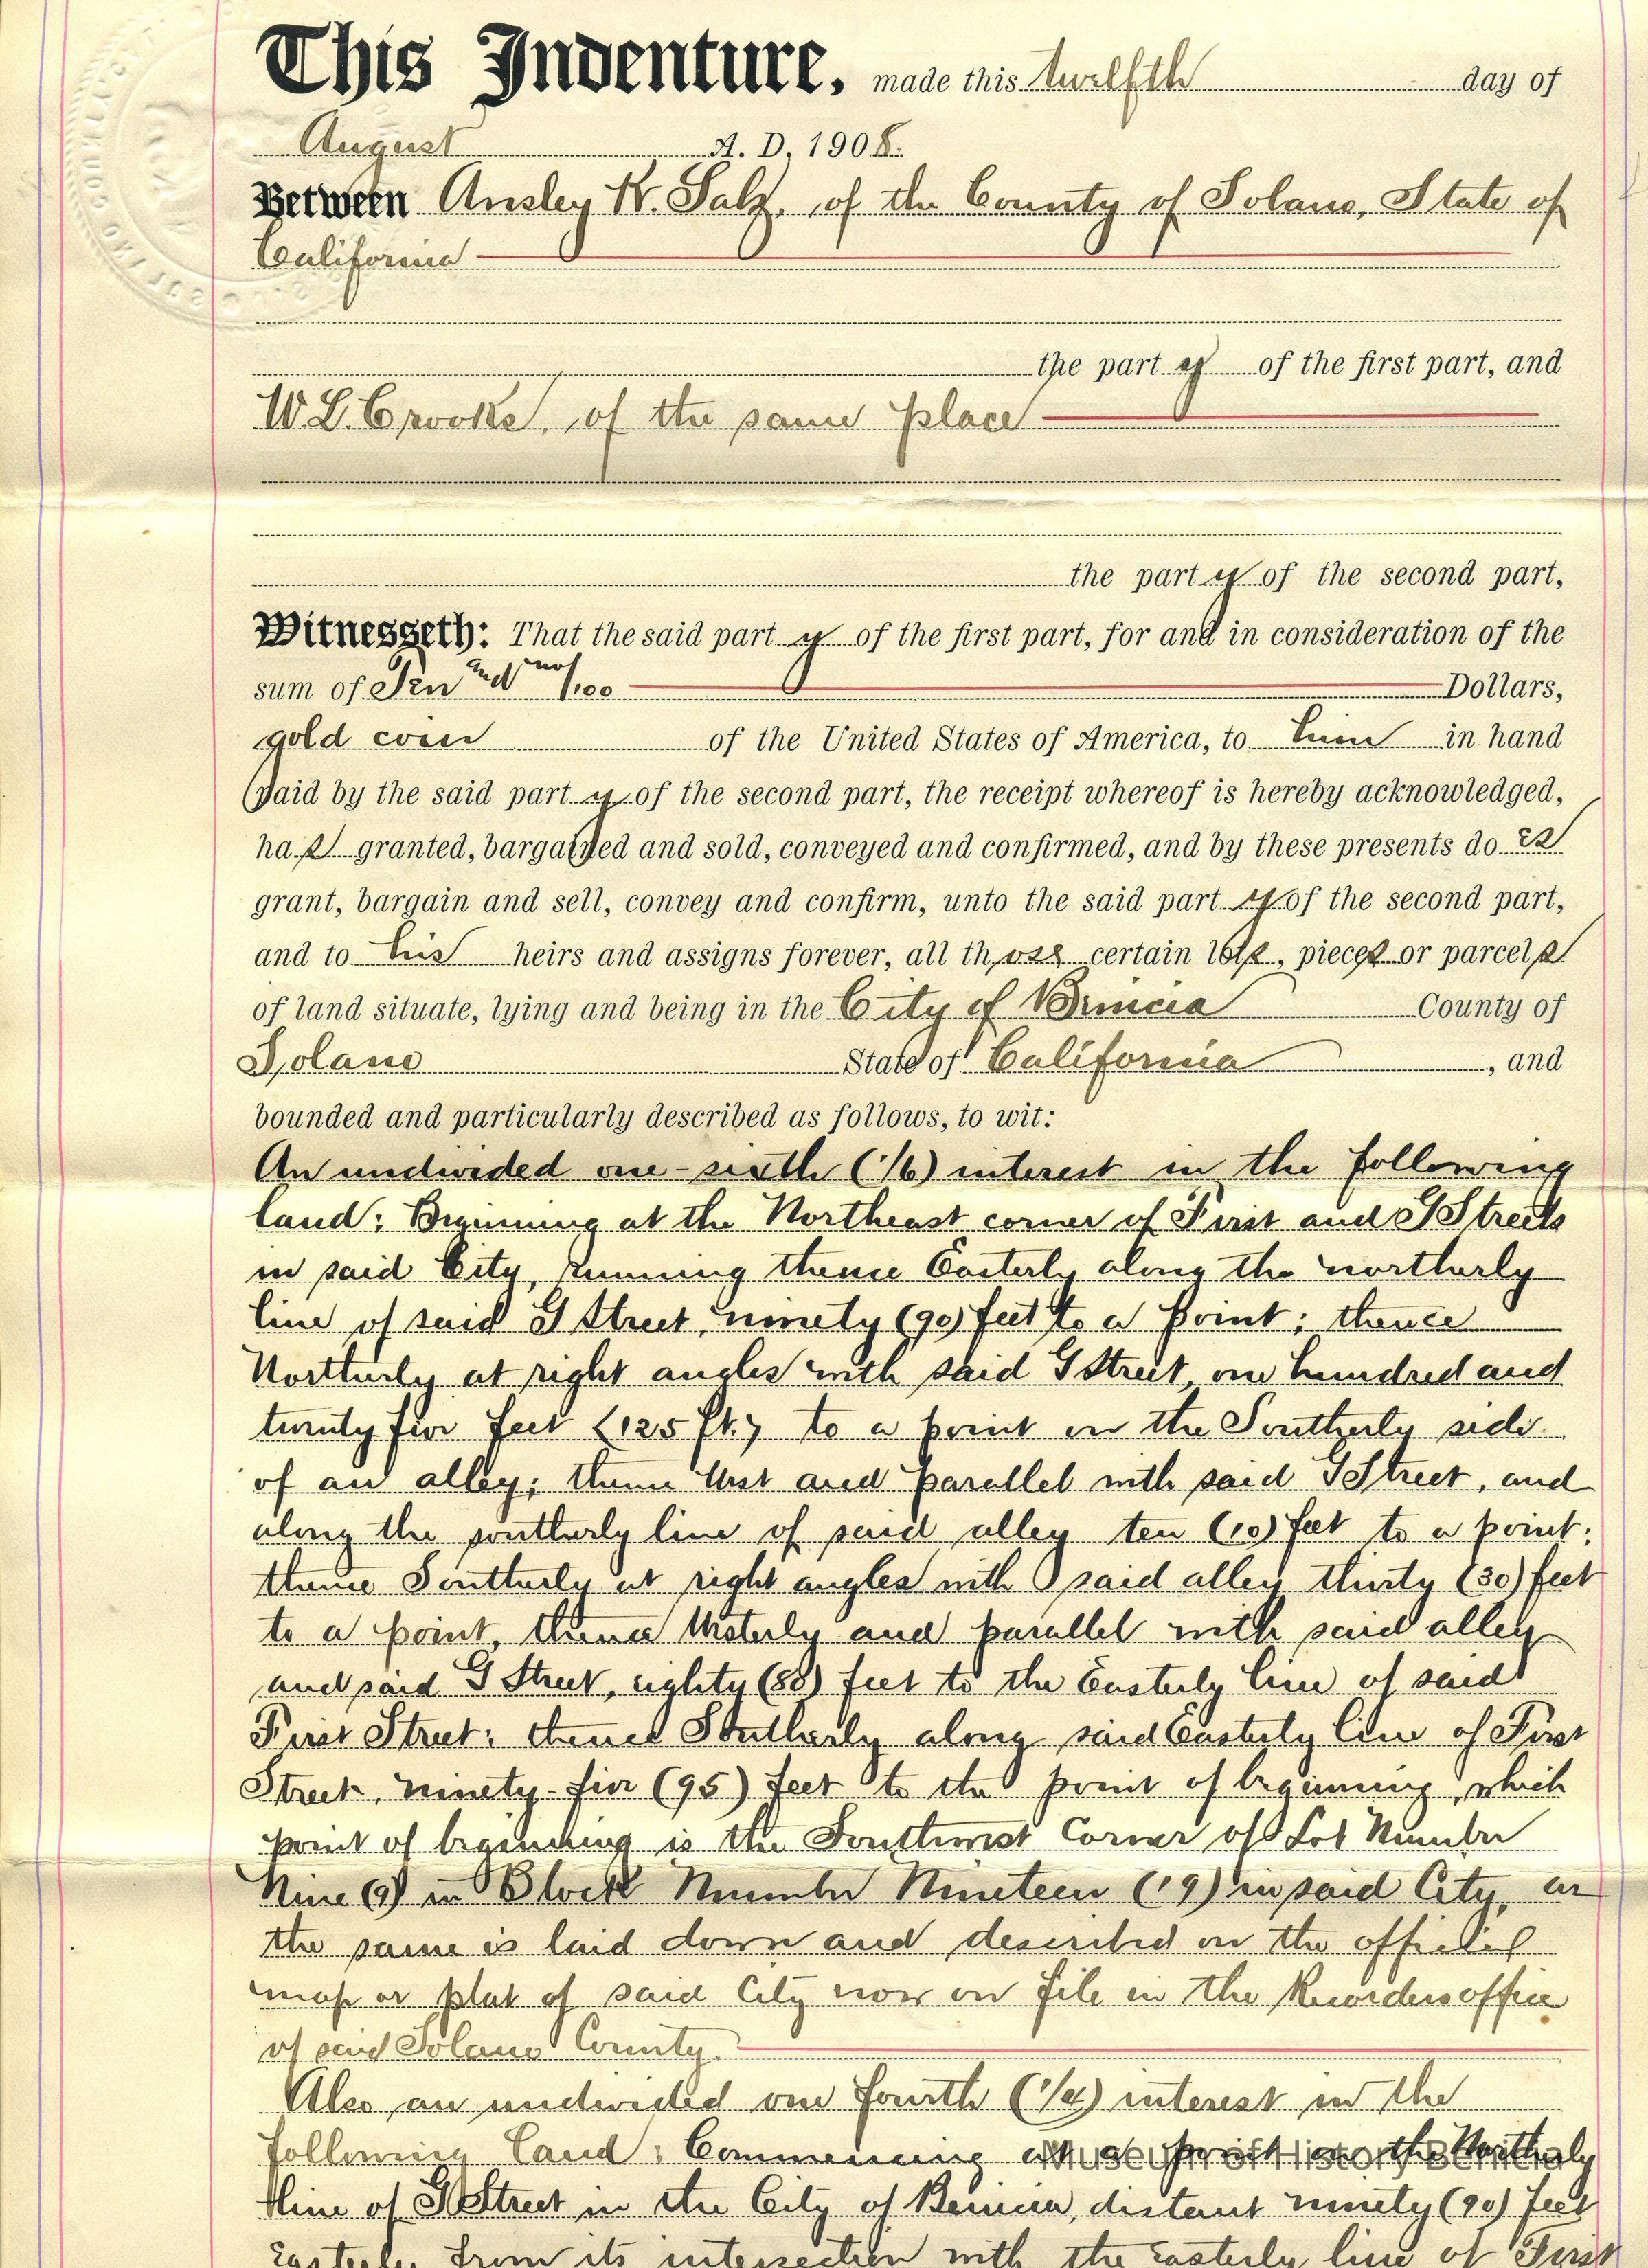 This Indenture, made this twelfth day of
August A. D. 1908.
Between Ansley K. Salz, of the County of Solano, State of
California
the party of the first part, and
W. L. Crooks, of the same place
the party of the second part,
Witnesseth: That the said party of the first part, for and in consideration of the
sum of Ten and no/100 Dollars,
gold coin of the United States of America, to him in hand
paid by the said party of the second part, the receipt whereof is hereby acknowledged,
has granted, bargained and sold, conveyed and confirmed, and by these presents does
grant, bargain and sell, convey and confirm, unto the said party of the second part,
and to his heirs and assigns forever, all those certain lots, pieces or parcels
of land situate, lying and being in the City of Benicia County of
Solano State of California, and
bounded and particularly described as follows, to wit:
An undivided one-sixth (1/6) interest in the following
land: Beginning at the Northeast corner of First and G Streets
in said City, running thence Easterly along the northerly
line of said G Street, ninety (90) feet to a point; thence
Northerly at right angles with said G Street, one hundred and
twenty five feet (125 ft.) to a point on the Southerly side
of an alley; thence West and parallel with said G Street, and
along the southerly line of said alley ten (10) feet to a point;
thence Southerly at right angles with said alley thirty (30) feet
to a point, thence Westerly and parallel with said alley
and said G Street, eighty (80) feet to the Easterly line of said
First Street; thence Southerly along said Easterly line of First
Street, ninety-five (95) feet to the point of beginning, which
point of beginning is the Southwest Corner of Lot Number
Nine (9) in Block Number Nineteen (19) in said City, as
the same is laid down and described on the official
map or plat of said City now on file in the Recorders office
of said Solano County.
Also an undivided one fourth (1/4) interest in the
following land: Commencing at a point on the Northerly
Museum of History Benicia
line of G Street in the City of Benicia, distant ninety (90) feet
Easterly from its intersection with the easterly line of First